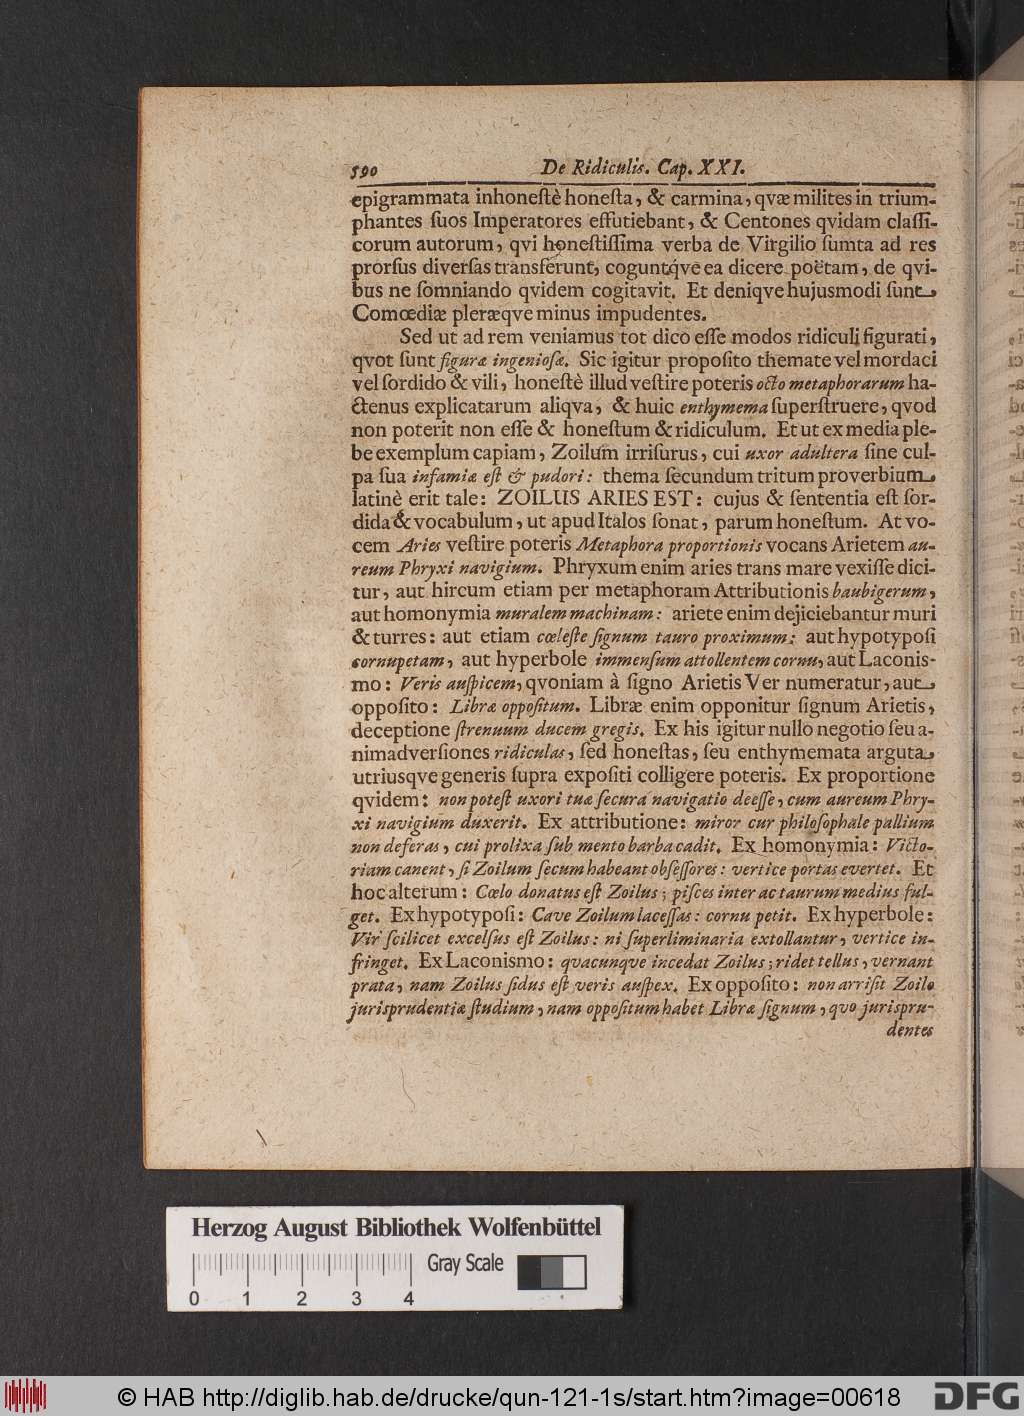 590 De Ridiculis. Cap. XXI.
epigrammata inhoneſtè honeſta, & carmina, qvæ milites in trium-
phantes ſuos Imperatores effutiebant, & Centones qvidam claſſi-
corum autorum, qvi honeſtiſſima verba de Virgilio ſumta ad res
prorſus diverſas transferunt, coguntq́ve ea dicere poëtam, de qvi-
bus ne ſomniando qvidem cogitavit. Et deniqve hujusmodi ſunt
Comœdiæ pleræqve minus impudentes.
Sed ut ad rem veniamus tot dico eſſe modos ridiculi figurati,
qvot ſunt figuræ ingenioſæ. Sic igitur propoſito themate vel mordaci
vel ſordido & vili, honeſtè illud veſtire poteris octo metaphorarum ha-
ctenus explicatarum aliqva, & huic enthymema ſuperſtruere, qvod
non poterit non eſſe & honeſtum & ridiculum. Et ut ex media ple-
be exemplum capiam, Zoilum irriſurus, cui uxor adultera ſine cul-
pa ſua infamiæ eſt & pudori: thema ſecundum tritum proverbium
latinè erit tale: ZOILUS ARIES EST: cujus & ſententia eſt ſor-
dida & vocabulum, ut apud Italos ſonat, parum honeſtum. At vo-
cem Aries veſtire poteris Metaphora proportionis vocans Arietem au-
reum Phryxi navigium. Phryxum enim aries trans mare vexiſſe dici-
tur, aut hircum etiam per metaphoram Attributionis baubigerum,
aut homonymia muralem machinam: ariete enim dejiciebantur muri
& turres: aut etiam cœleſte ſignum tauro proximum: aut hypotypoſi
cornupetam, aut hyperbole immenſum attollentem cornu, aut Laconis-
mo: Veris auſpicem, qvoniam à ſigno Arietis Ver numeratur, aut
oppoſito: Libræ oppoſitum. Libræ enim opponitur ſignum Arietis,
deceptione ſtrenuum ducem gregis. Ex his igitur nullo negotio ſeu a-
nimadverſiones ridiculas, ſed honeſtas, ſeu enthymemata arguta
utriusqve generis ſupra expoſiti colligere poteris. Ex proportione
qvidem: non poteſt uxori tuæ ſecura navigatio deeſſe, cum aureum Phry-
xi navigium duxerit. Ex attributione: miror cur philoſophale pallium
non deferas, cui prolixa ſub mento barba cadit. Ex homonymia: Victo-
riam canent, ſi Zoilum ſecum habeant obſeſſores: vertice portas evertet. Et
hoc alterum: Cœlo donatus eſt Zoilus; piſces inter ac taurum medius ful-
get. Ex hypotypoſi: Cave Zoilum laceſſas: cornu petit. Ex hyperbole:
Vir ſcilicet excelſus eſt Zoilus: ni ſuperliminaria extollantur, vertice in-
fringet. Ex Laconismo: qvacunqve incedat Zoilus; ridet tellus, vernant
prata, nam Zoilus ſidus eſt veris auſpex. Ex oppoſito: non arriſit Zoilo
jurisprudentiæ ſtudium, nam oppoſitum habet Libræ ſignum, qvo jurispru-
dentes
Herzog August Bibliothek Wolfenbüttel
Gray Scale
0 1 2 3 4
© HAB http://diglib.hab.de/drucke/qun-121-1s/start.htm?image=00618
DFG